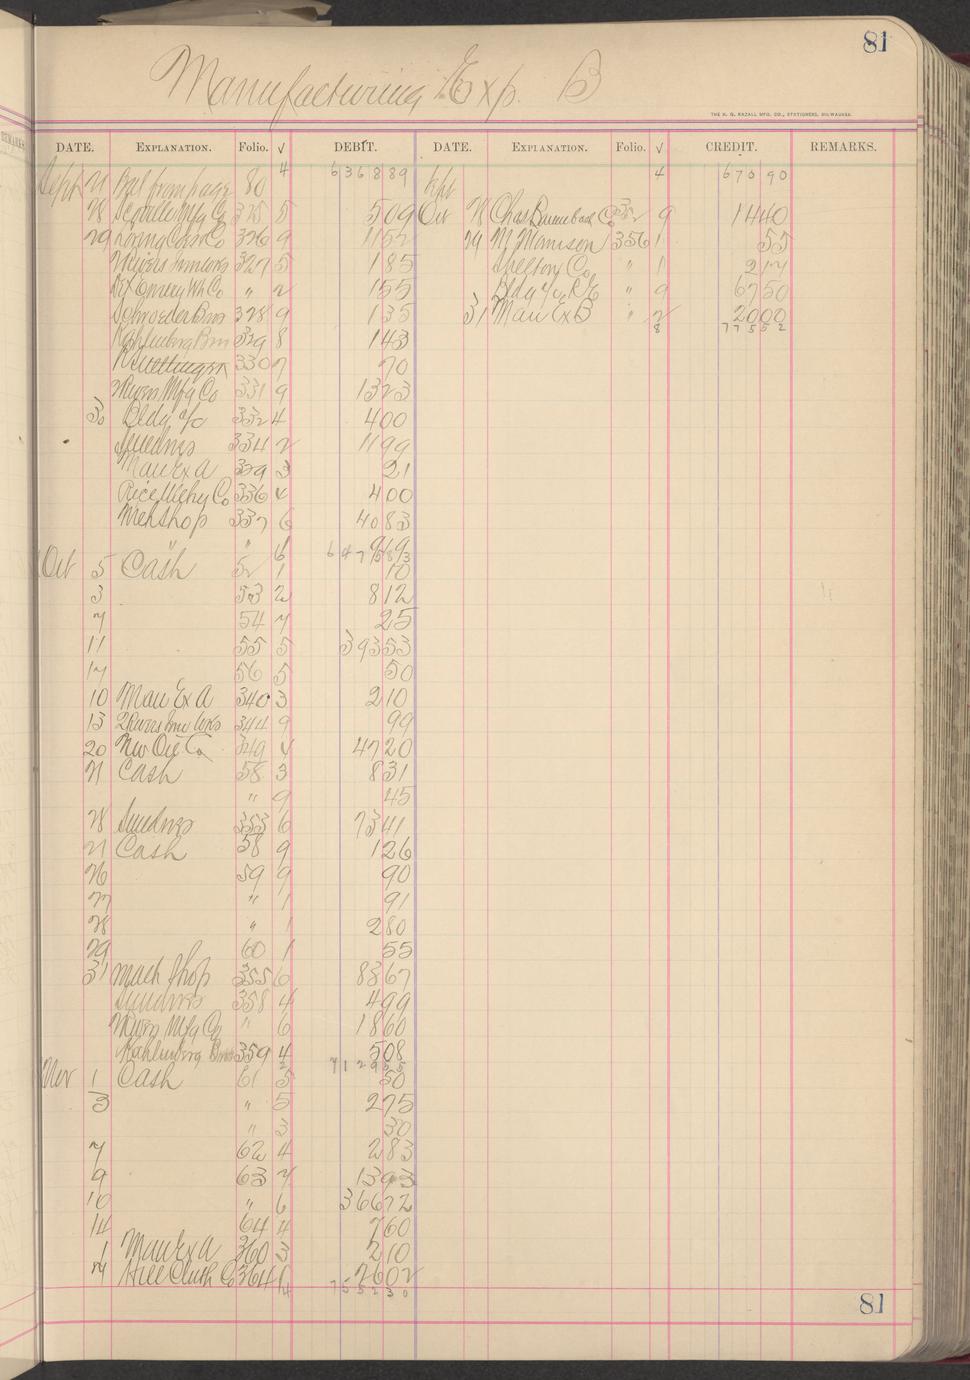 81
Manufacturing Exp. B
THE H. G. RAZALL MFG. CO., STATIONERS, MILWAUKEE.
REMARKS.
DATE. EXPLANATION. Folio. √ DEBIT. DATE. EXPLANATION. Folio. √ CREDIT. REMARKS.
Sept 21 Bal from page 80 4 6368 89 Sept 4 670 90
28 Scoville Mfg Co 325 5 5 09 Oct 28 Chas 352 9 14 40
29 Co 326 9 11 52 29 M Morrison 356 1 55
327 5 1 85 Shelton Co " 1 2 17
Co " 2 1 55 Bldg a/c " 9 67 50
Schroeder Bros 328 9 1 35 31 Man Ex B " 2 20 00
Kahlenberg Bros 329 8 1 43 8 775 52
330 7 70
Rivers Mfg Co 331 9 13 23
30 Bldg a/c 332 4 4 00
Sundries 334 2 11 99
Man Ex A 329 3 21
Co 336 4 4 00
Mch Shop 337 6 40 83
" " 6 9 69
6475 83
Oct 5 Cash 52 1 10
3 53 2 8 12
7 54 7 25
11 55 5 393 53
17 56 5 50
10 Man Ex A 340 3 2 10
13 2 Rivers Wks 344 9 99
20 Oil Co 349 4 47 20
21 Cash 58 3 8 31
" 9 45
28 Sundries 353 6 73 41
21 Cash 58 9 1 26
26 59 9 90
27 " 1 91
28 " 1 2 80
29 60 1 55
31 Mach Shop 355 6 88 67
Sundries 358 4 4 99
Rivers Mfg Co " 6 18 60
Kahlenberg Bros 359 4 5 08
Nov 1 Cash 61 5 50
3 " 5 2 75
" 3 30
7 62 4 2 83
9 63 7 13 93
10 " 6 366 72
14 64 4 7 60
1 Man Ex A 360 3 2 10
7 Hill Clutch Co 364 6 26 02
14 7552 30
81